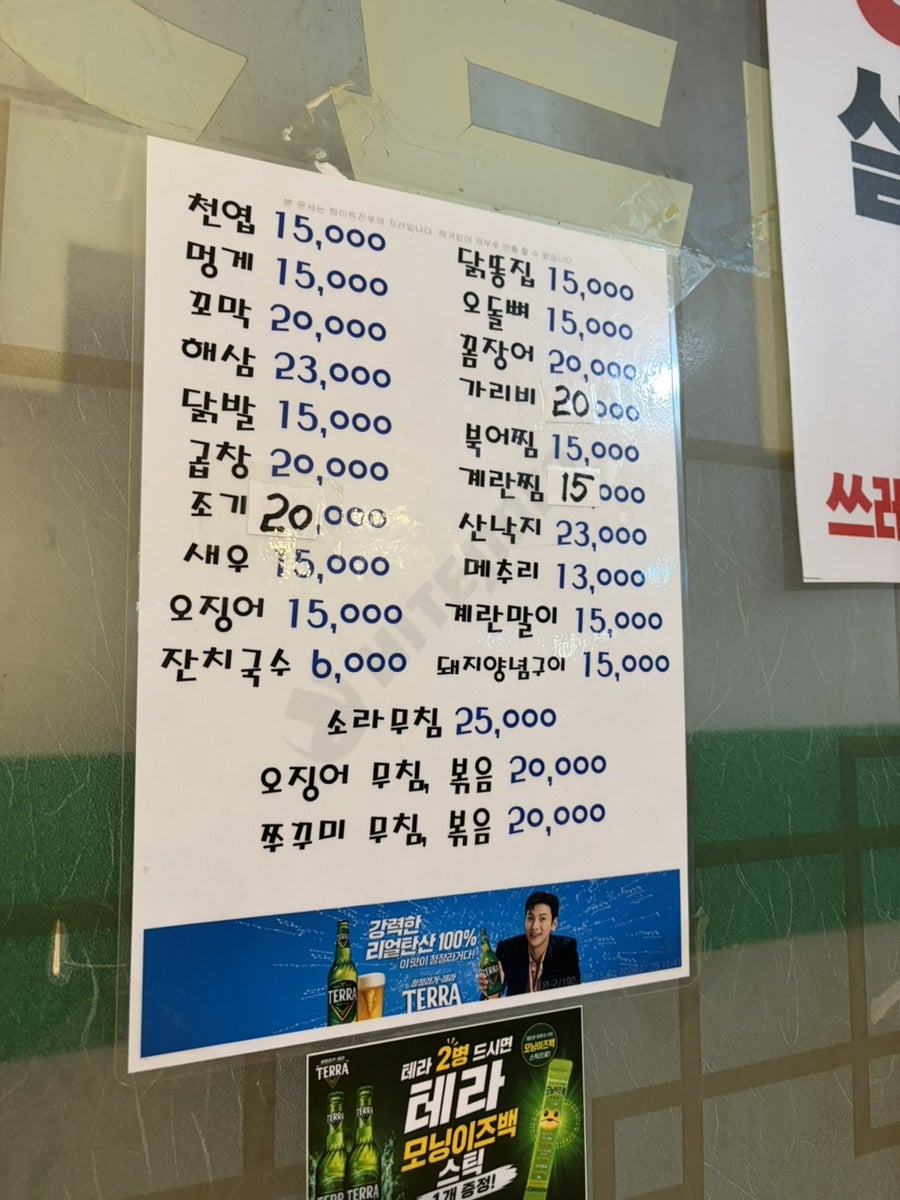 본 문서는 하이트진로의 자산입니다. 허가없이 외부로 반출 할 수 없습니다
천엽 15,000
멍게 15,000
꼬막 20,000
해삼 23,000
닭발 15,000
곱창 20,000
조기 20,000
새우 15,000
오징어 15,000
잔치국수 6,000
닭똥집 15,000
오돌뼈 15,000
꼼장어 20,000
가리비 20,000
북어찜 15,000
계란찜 15,000
산낙지 23,000
메추리 13,000
계란말이 15,000
돼지양념구이 15,000
소라무침 25,000
오징어 무침, 볶음 20,000
쭈꾸미 무침, 볶음 20,000
강력한
리얼탄산 100%
이맛이 청정라거다!
청정라거-테라
TERRA
TERRA
TERRA
테라 2병 드시면
테라
모닝이즈백
스틱
1개 증정!
모닝이즈백
스틱으로!
모닝이즈백
TERRA
TERRA
쓰레